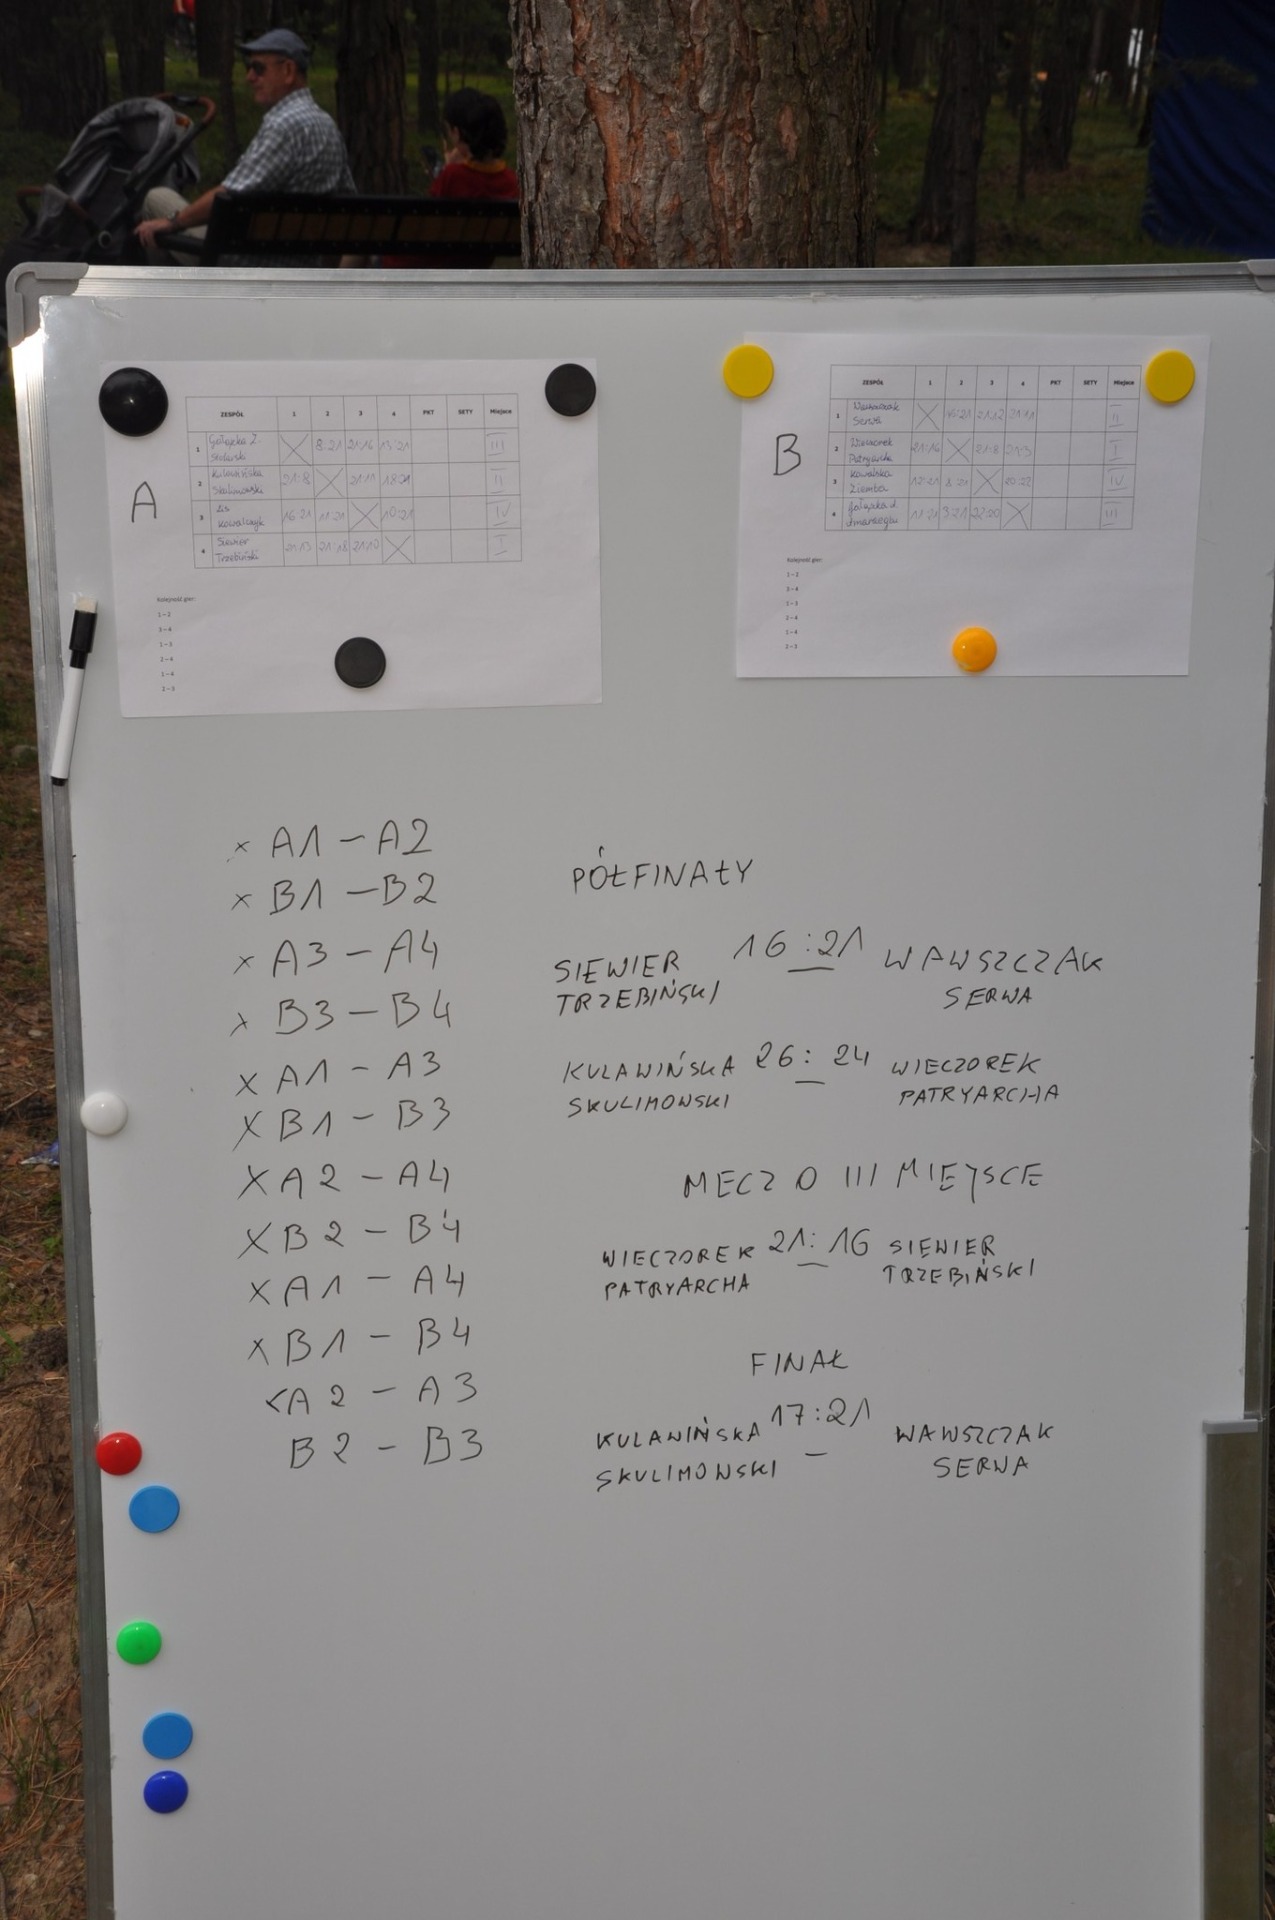 A
ZESPÓŁ 1 2 3 4 PKT SETY Miejsce
1 Gołąbka Z. 8:21 21:16 13:21 III
2 Kulawińska Skulimowski 21:8 21:11 18:21 II
3 Lis Kowalczyk 16:21 11:21 10:21 IV
4 Siewier Trzebiński 21:13 21:18 21:10 I
Kolejność gier:
1 – 2
3 – 4
1 – 3
2 – 4
1 – 4
2 – 3
B
ZESPÓŁ 1 2 3 4 PKT SETY Miejsce
1 Wawszczak Serwa 16:21 21:12 21:11 II
2 Wieczorek Patryarcha 21:16 21:8 21:3 I
3 Kowalska Ziemba 12:21 8:21 20:22 IV
4 11:21 3:21 22:20 III
Kolejność gier:
1 – 2
3 – 4
1 – 3
2 – 4
1 – 4
2 – 3
x A1 – A2
x B1 – B2
x A3 – A4
x B3 – B4
x A1 – A3
x B1 – B3
x A2 – A4
x B2 – B4
x A1 – A4
x B1 – B4
x A2 – A3
B2 – B3
PÓŁFINAŁY
SIEWIER 16:21 WAWSZCZAK
TRZEBIŃSKI SERWA
KULAWIŃSKA 26:24 WIECZOREK
SKULIMOWSKI PATRYARCHA
MECZ O III MIEJSCE
WIECZOREK 21:16 SIEWIER
PATRYARCHA TRZEBIŃSKI
FINAŁ
KULAWIŃSKA 17:21 WAWSZCZAK
SKULIMOWSKI – SERWA